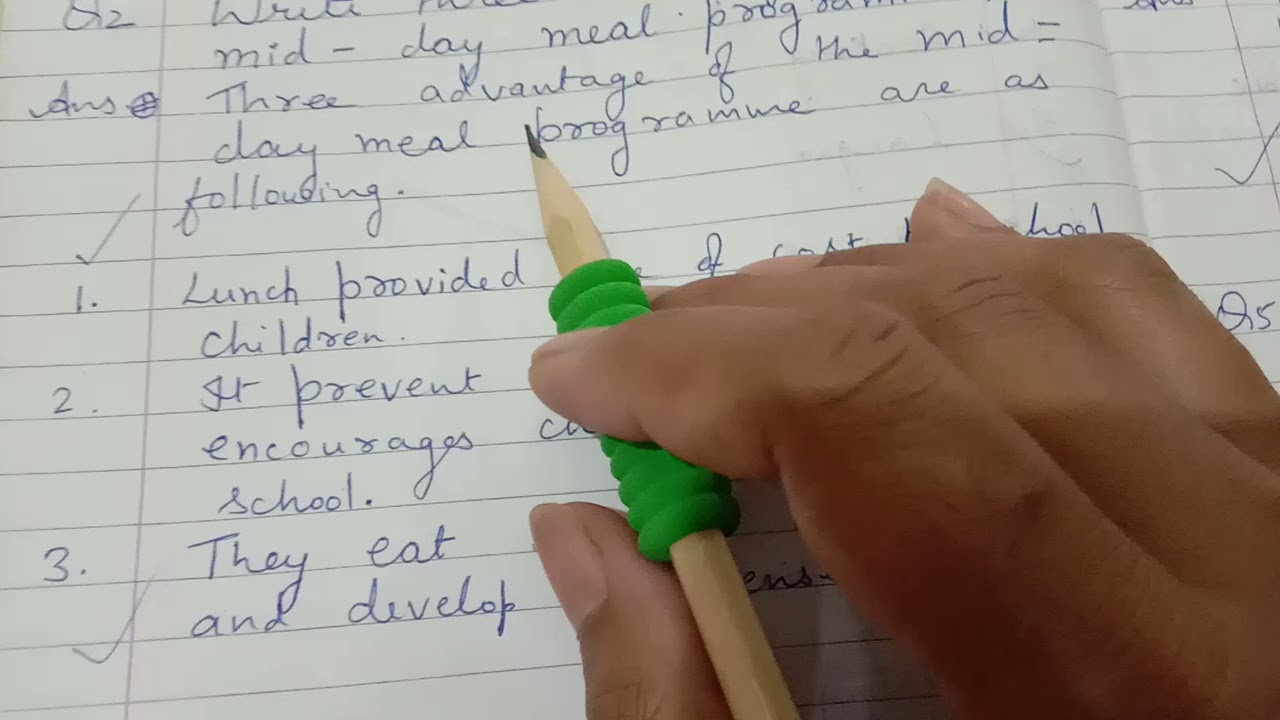 Q2 Write three
mid - day meal programm
Ans Three advantage of the mid =
day meal programme are as
following.
1. Lunch provided of cost school
children.
2. It prevent
encourages
school.
3. They eat
and develop
Q5